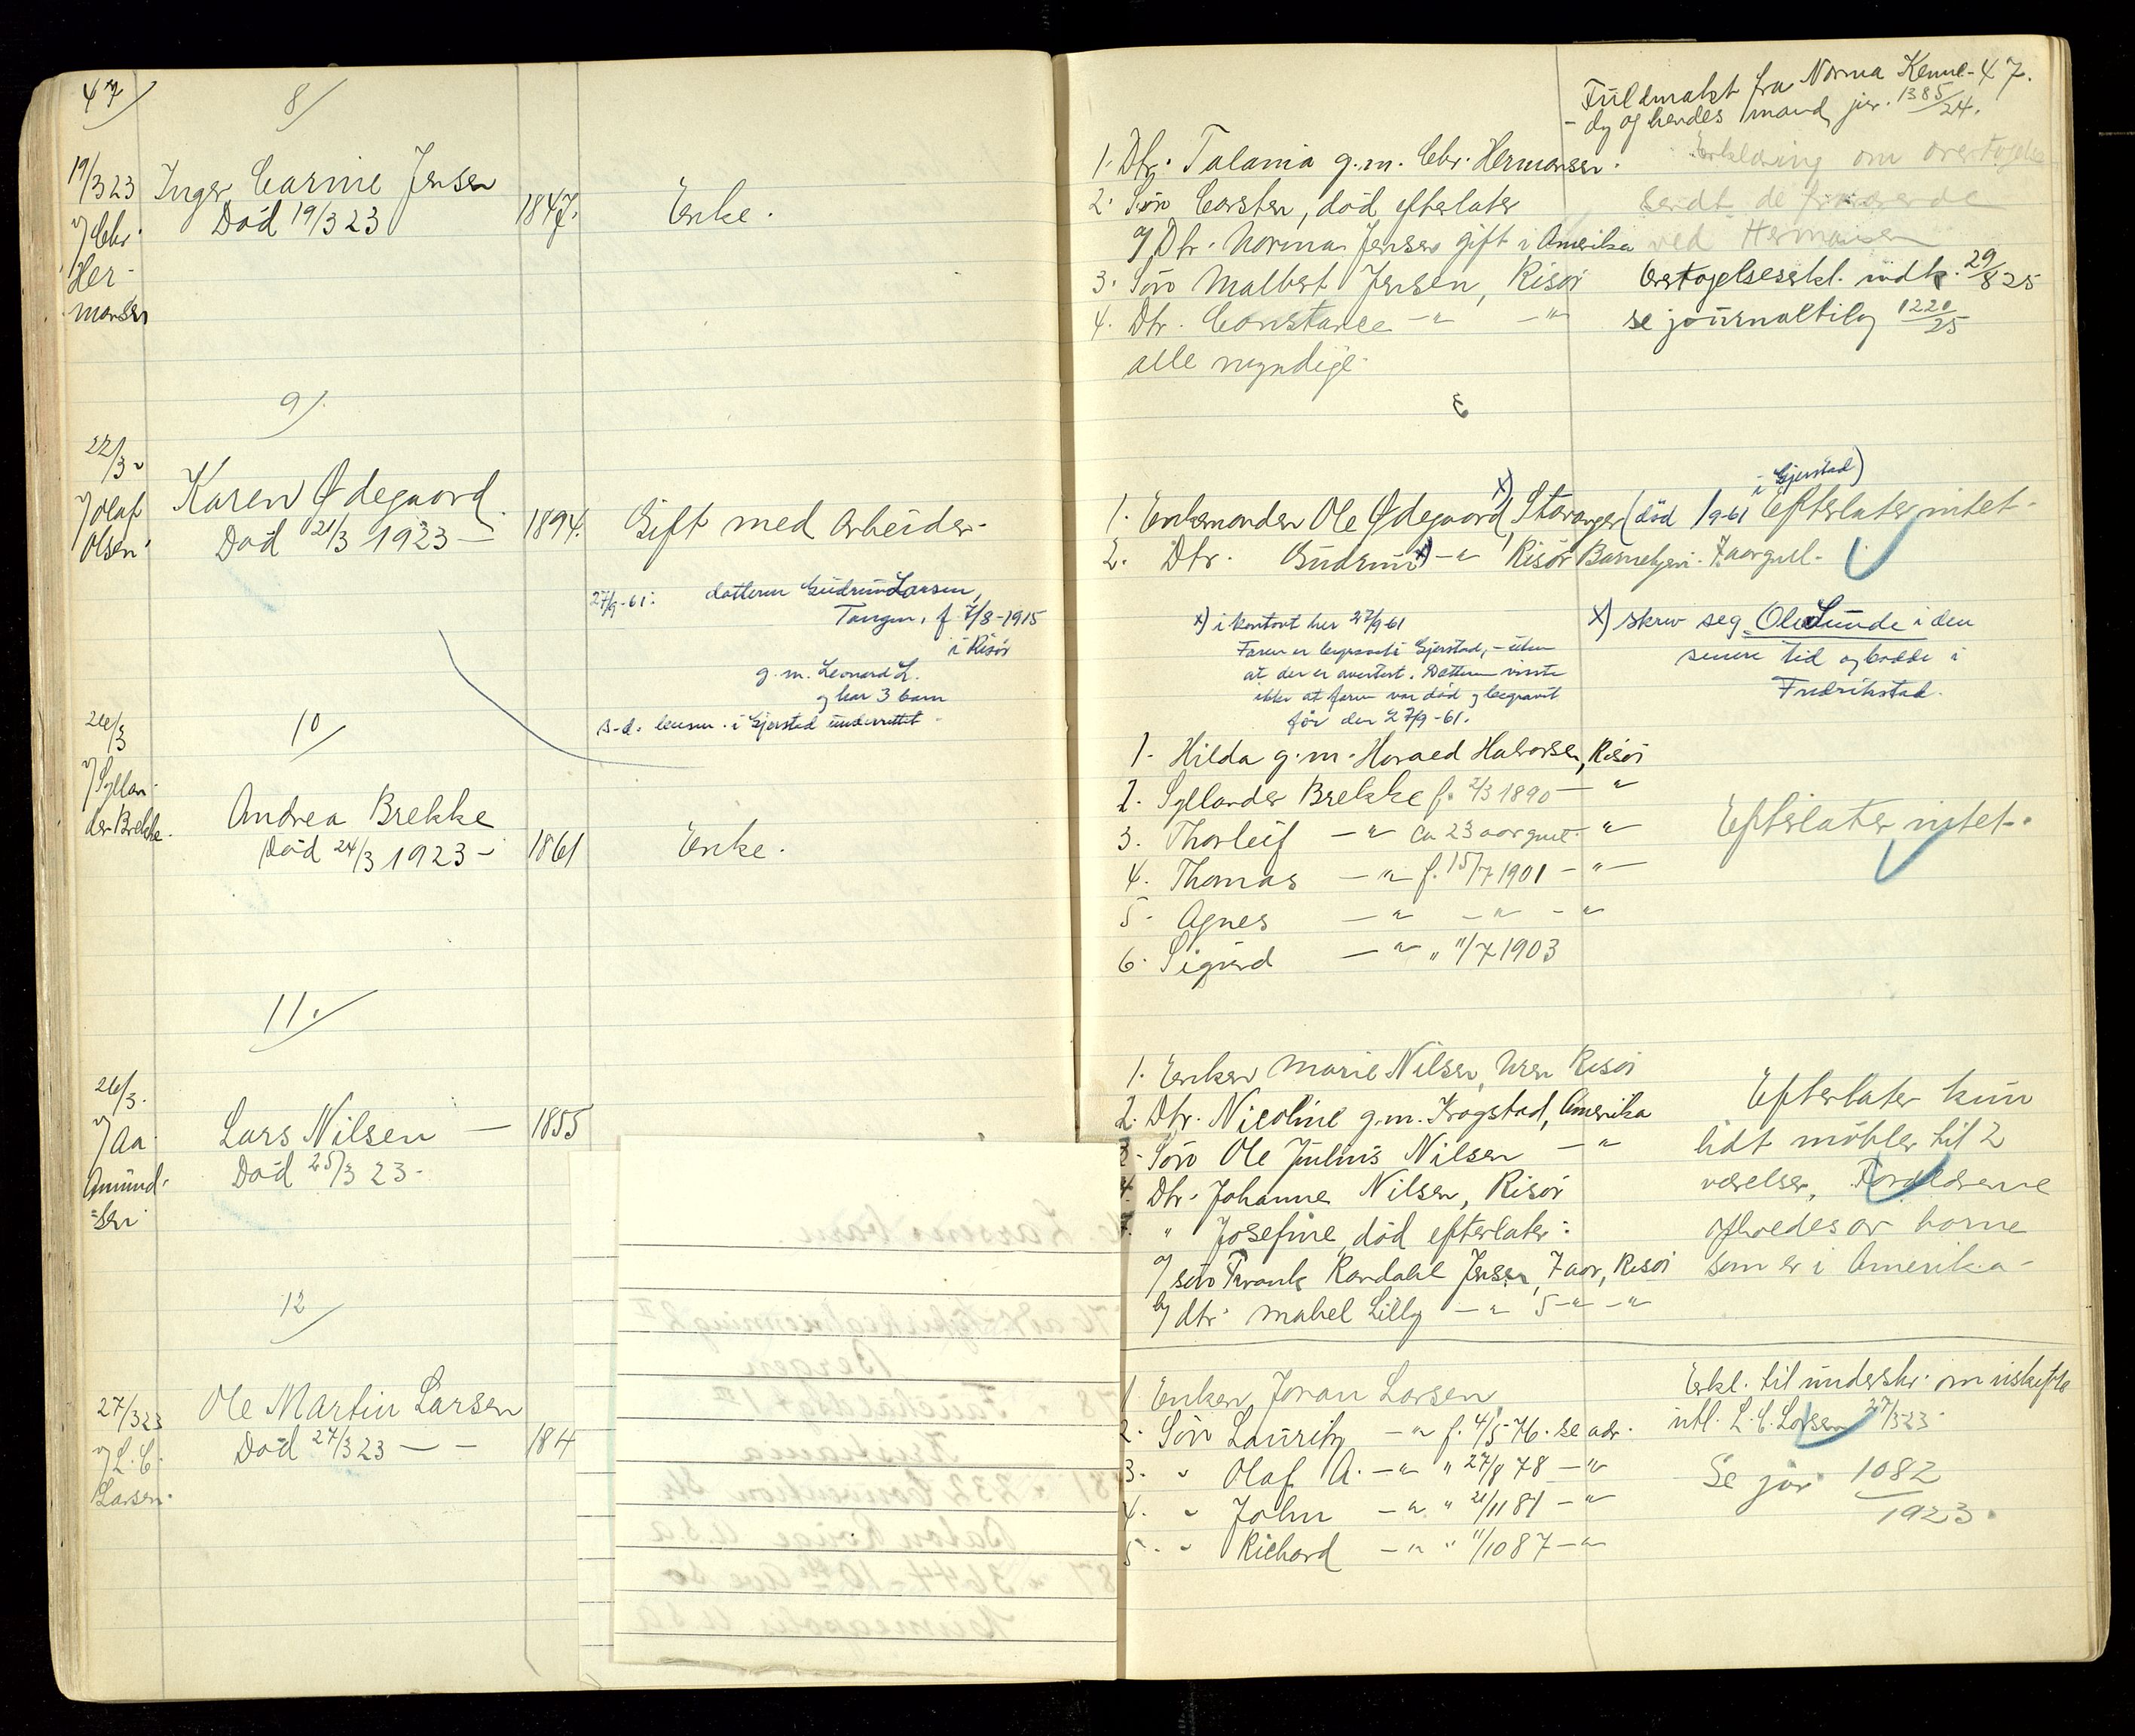 47/
8/
19/3 23
Inger Carine Jensen
Död 19/3 23
1847.
Enke.
v/ Chr.
Her-
mansen
9/.
22/3 "
Karen Ødegaard
Död 21/3 1923 —
1894.
Gift med arbeider-
v/ Olaf
Olsen.
27/9-61: datteren Gudrun Larsen,
Tangen, f. 7/8-1915
i Risör
g.m. Leonard L.
og har 3 barn
s.d. lensm. i Gjerstad underrettet.
10/
24/3
v/ Syllan-
der Brekke.
Andrea Brekke
Död 24/3 1923 -
1861
Enke.
11./
26/3.
v/ Aa
Amund-
sen.
Lars Nilsen —
Död 25/3 23 -
1855
12/
27/3 23
v/ L. C.
Larsen.
Ole Martin Larsen
Död 27/3 23 — -
184
Larsens barn.
Bergen
Kristiania
232 Convention St.
Baton Rouge U.S.A
3644-10th Ave So
Minneapolis U.S.A
47.
Fuldmakt fra Norma Kenne-
dy og hendes mand, jnr. 1385/24.
Erklæring om overtagelse
sendt de
ved Hermansen
1. Dtr. Talania g.m. Chr. Hermansen.
2. Sön Carsten, död, efterlater
a/ Dtr. Norma Jensen gift i Amerika
3. Sön Malbert Jensen, Risör
4. Dtr. Constance —"— —"—
alle myndige.
Overtagelseserkl. indk. 29/8 25
se journaltilg 1220/25
1. Enkemanden Ole Ødegaard x), Stavanger (död /9-61 i Gjerstad)
Efterlater intet.
2. Dtr. Gudrun x) —"— Risör Barnehjem. 7 aar gml.
x) i kontort her 27/9-61
Faren er begravet i Gjerstad, - uten
at der er avertert. Datteren visste
ikke at faren var död og begravet
för den 27/9-61.
x) skrev seg Ole Lunde i den
senere tid og bodde i
Fredrikstad.
1. Hilda g.m. Harald Halvorsen, Risör
2. Syllander Brekke f. 2/3 1890 — "
3. Thorleif —"— ca 23 aar gml. "
4. Thomas —"— f. 15/7 1901 —"—
5. Agnes —"— —"— —"
6. Sigurd —"— " 11/7 1903
Efterlater intet.
1. Enken Marie Nilsen, Uren Risör
2. Dtr. Nicoline g.m. Krogstad, Amerika
3. Sön Ole Julius Nilsen — "
4. Dtr. Johanne Nilsen, Risör
5. " Josefine, död efterlater:
a/ sön Frank Kardahl Jensen, 7 aar, Risör
b/ dtr. Mabel Lilly —"— 5 —"— —"
Efterlater kun
lidt möbler til 2
værelser, Forældrene
av börne
som er i Amerika -
1. Enken Joran Larsen,
2. Sön Lauritz —"— f. 4/5 76. se adr.
3. " Olaf A. —"— " 27/8 78 —"—
4. " John —"— " 21/11 81 —"—
5. " Richard —"— " 11/10 87 —"—
Erkl. til underskr. om uskifte
utl. L. C. Larsen 27/3 23.
Se jnr 1082/1923.